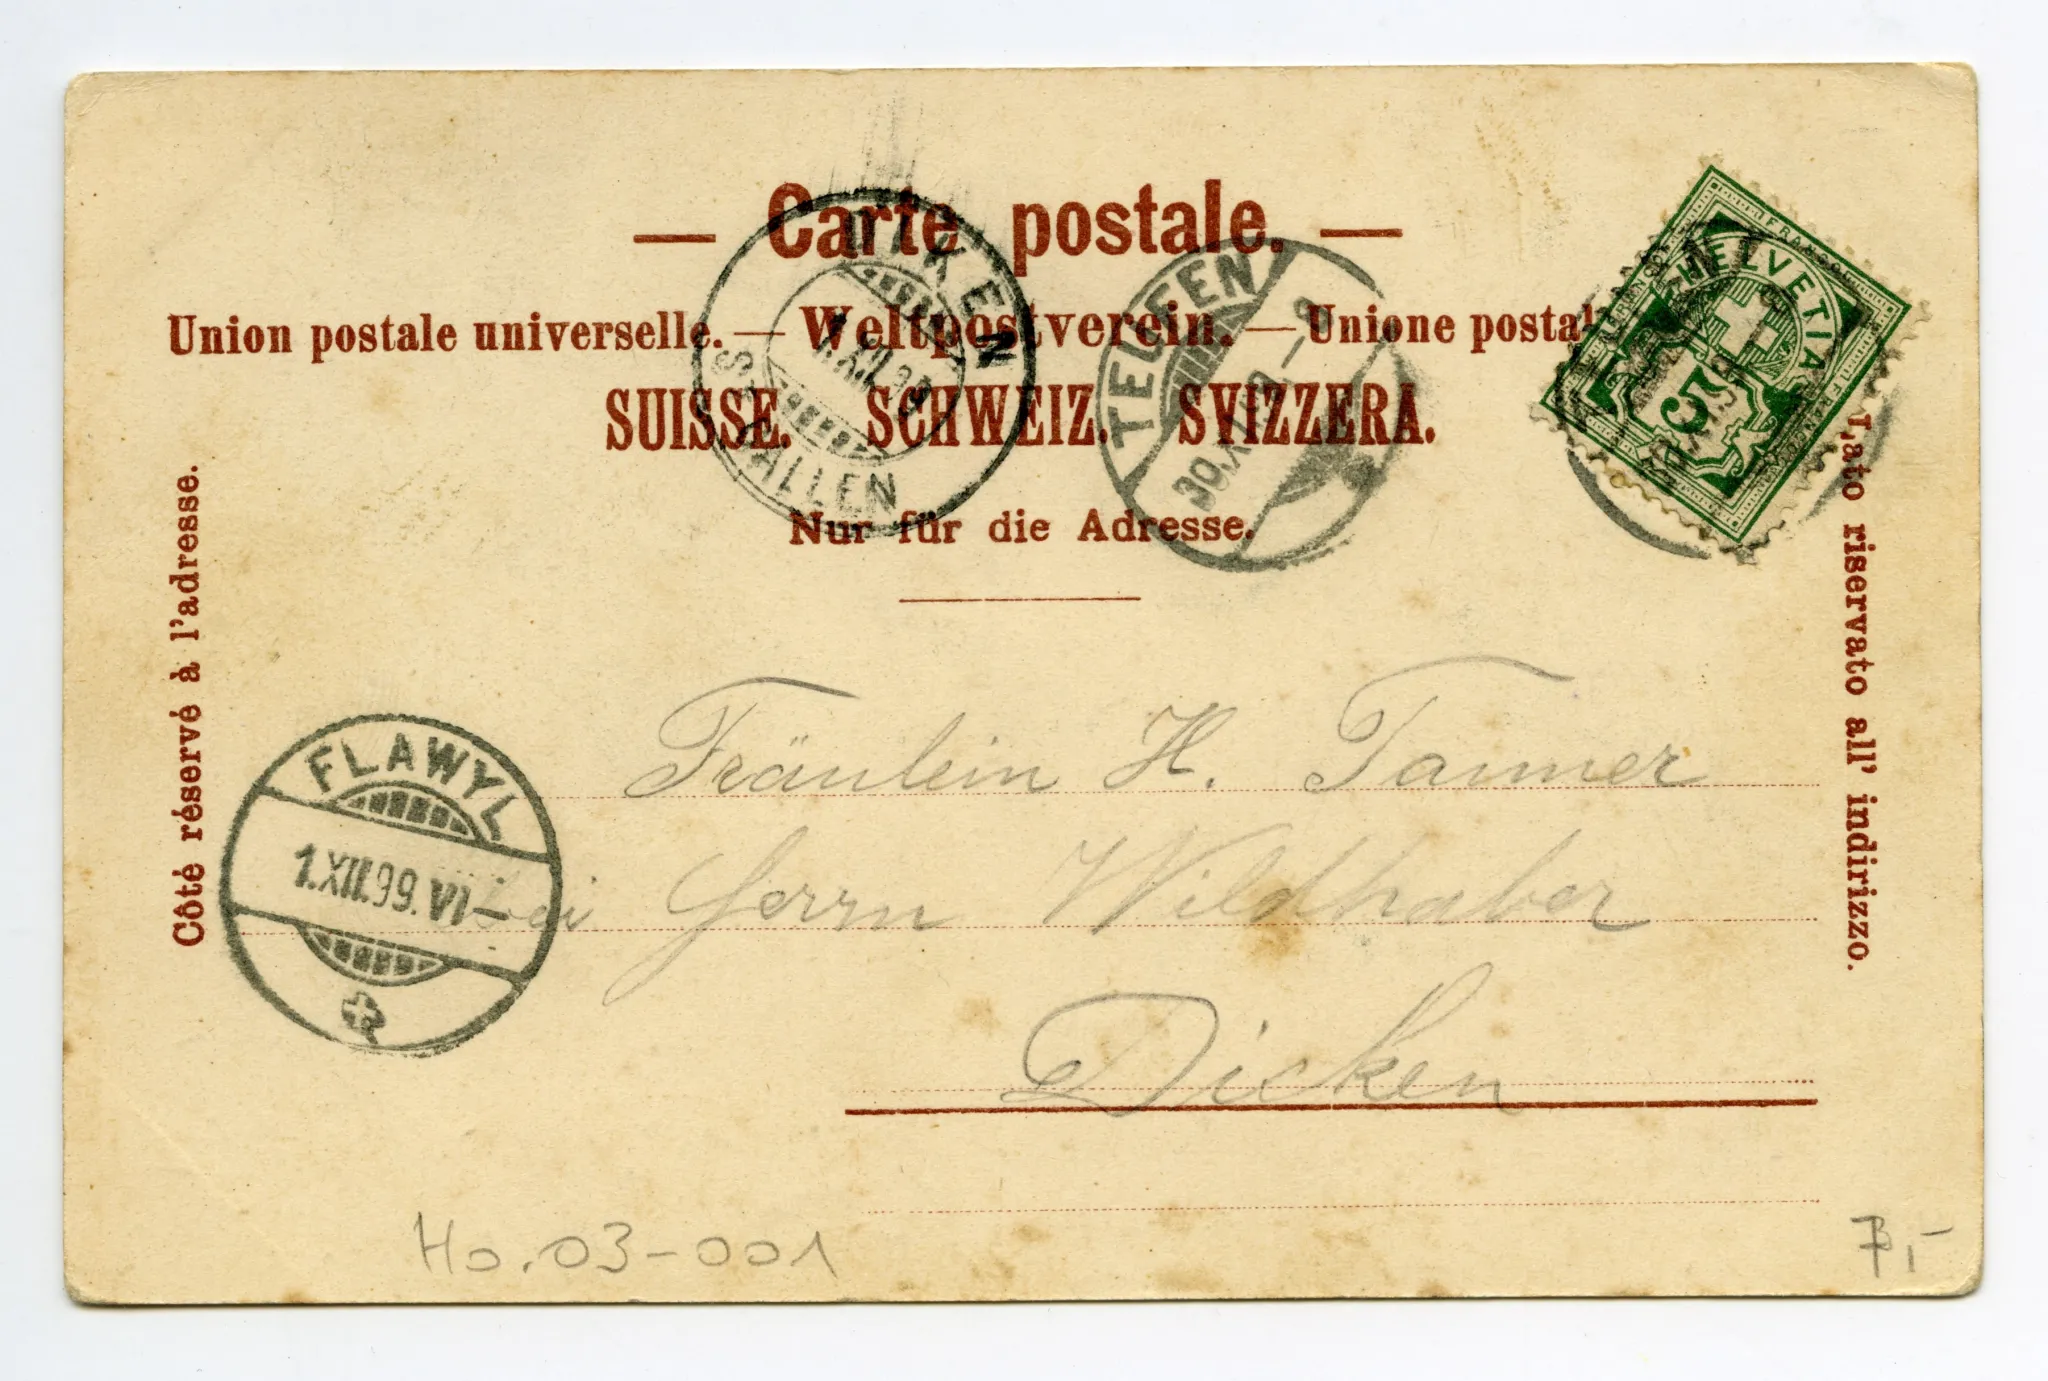 — Carte postale. —
Union postale universelle. — Weltpostverein. — Unione postal
SUISSE. SCHWEIZ. SVIZZERA.
Nur für die Adresse.
Côté réservé à l'adresse.
Lato riservato all' indirizzo.
DICKEN
1.XII.99
ST. GALLEN
TEUFEN
30.XI.99-8
FRANCO
HELVETIA
5
FLAWYL
1.XII.99.VI-
Fräulein H. Tanner
bei Herrn Wildhaber
Dicken
Ho.03-001
7,-